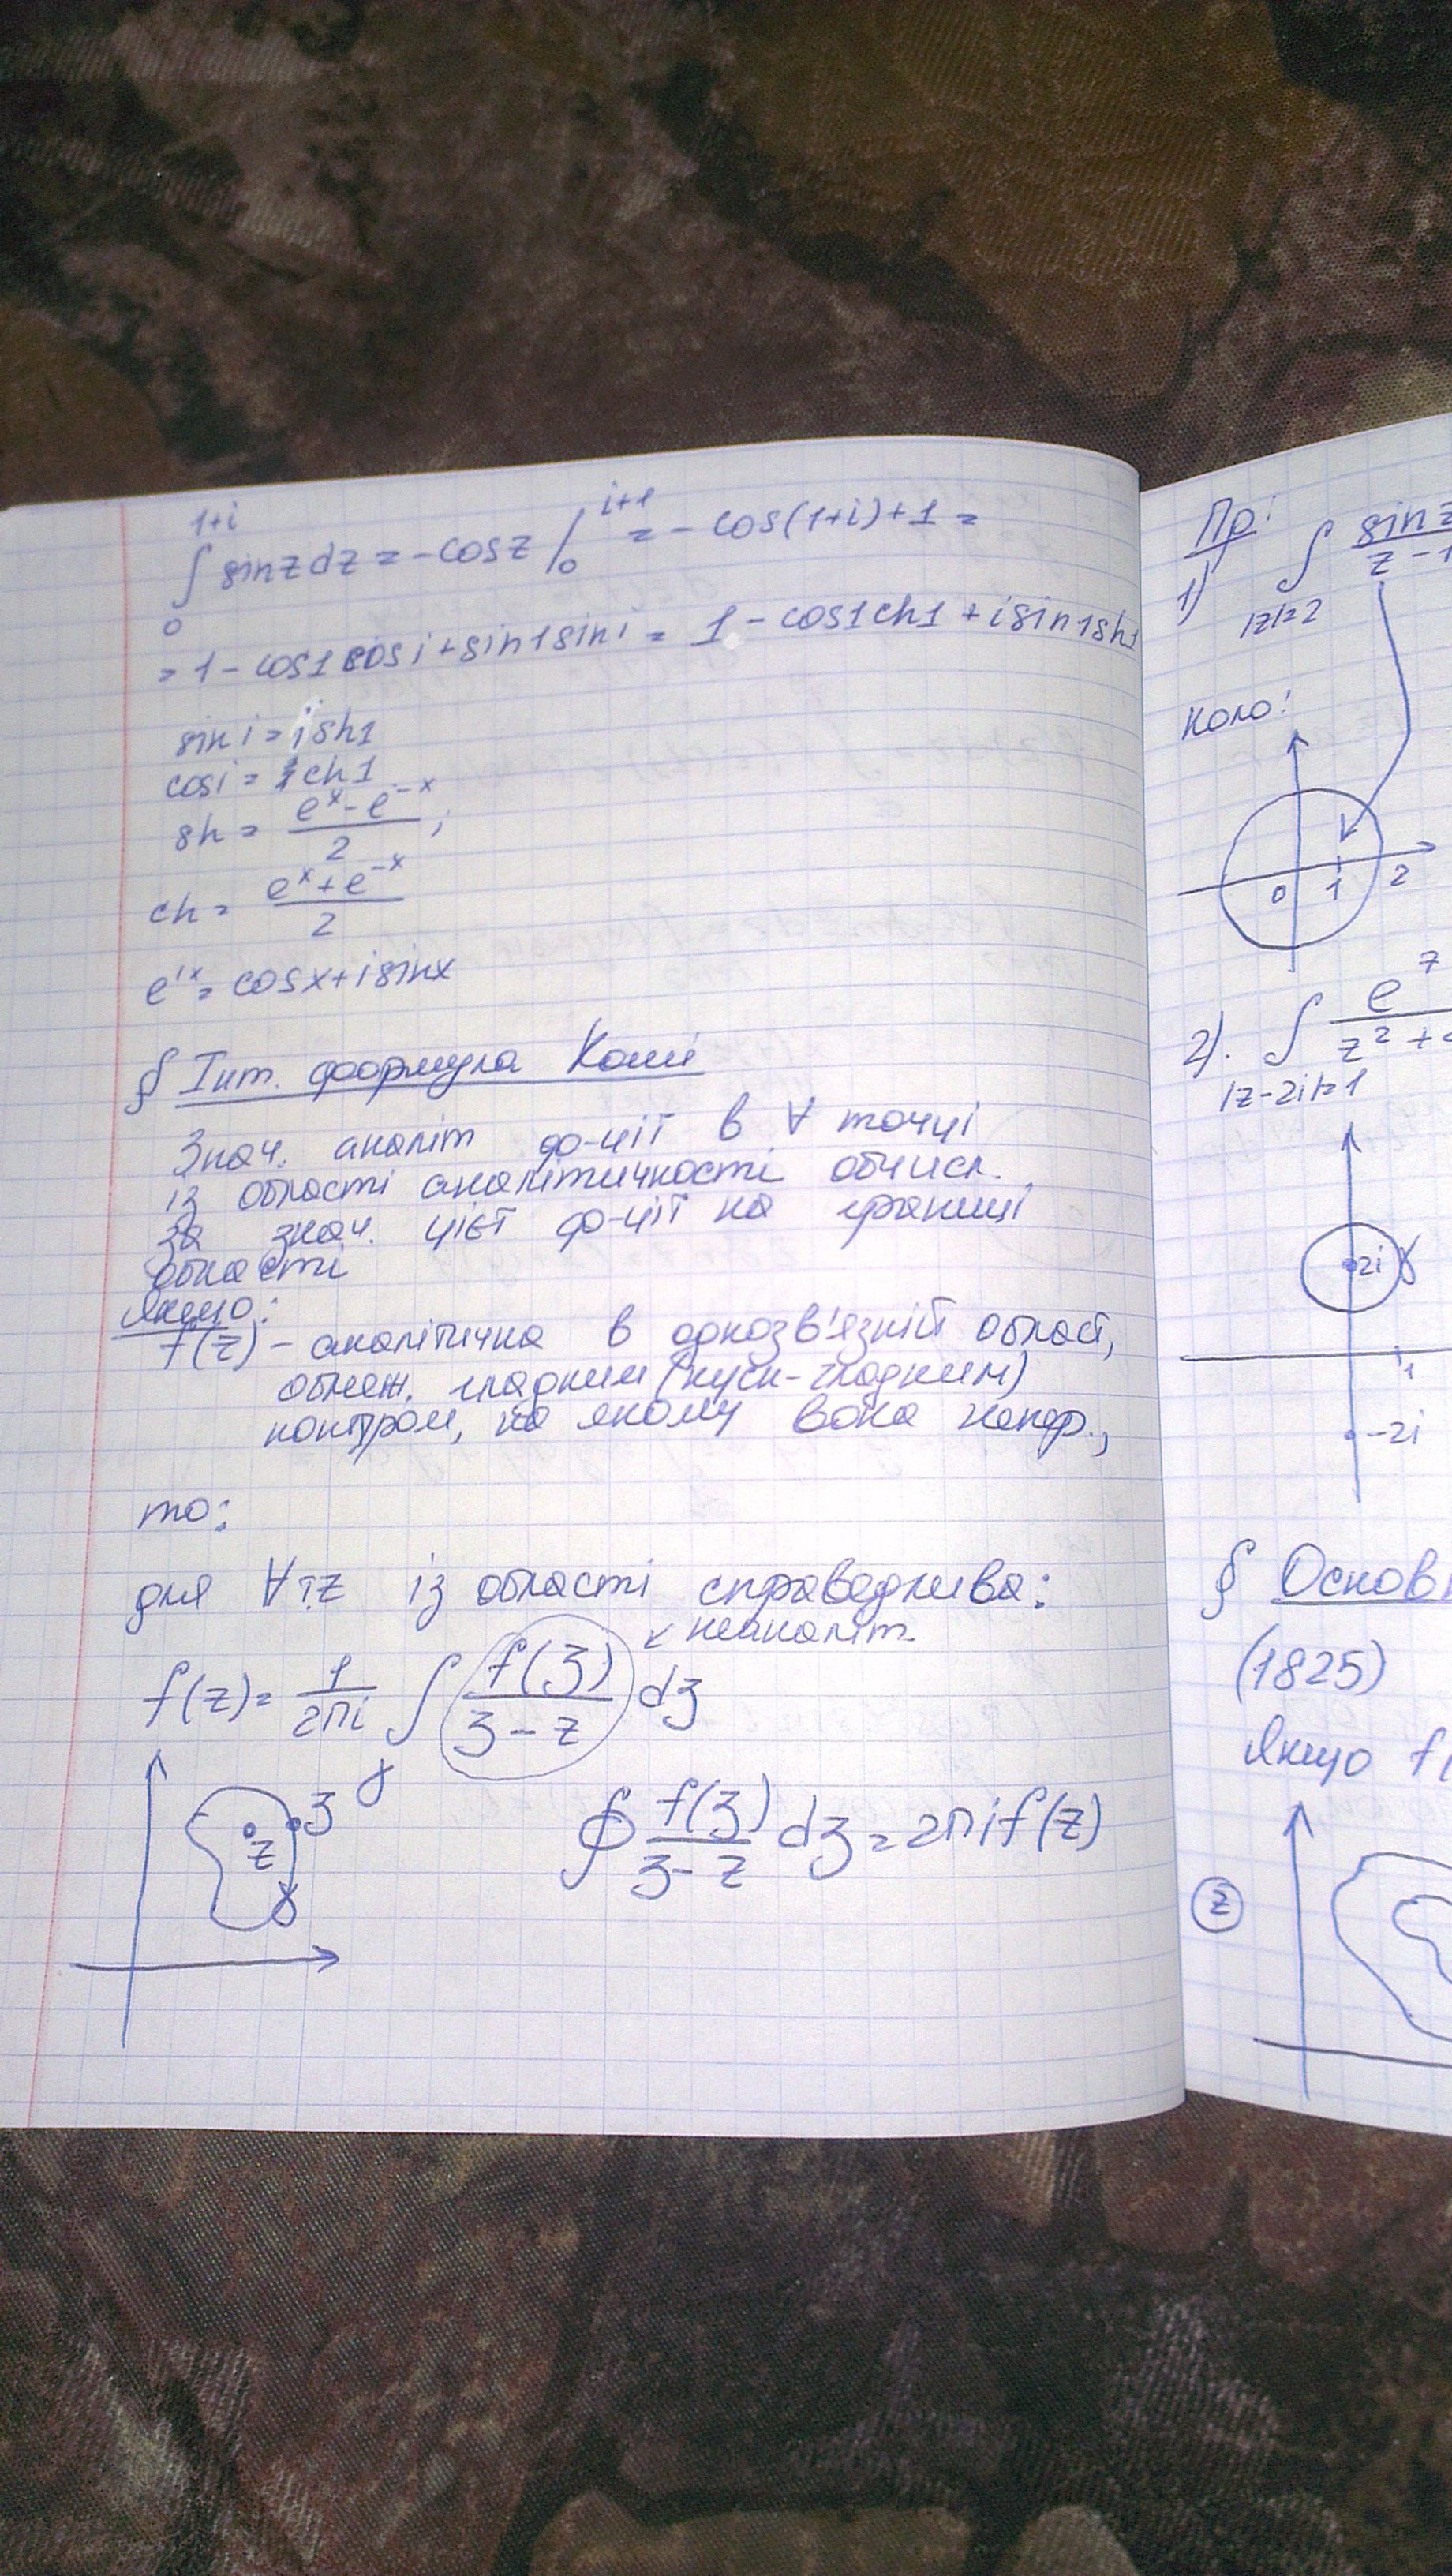 1+i
∫ sinz dz = -cosz |₀ⁱ⁺¹ = -cos(1+i)+1 =
0
= 1 - cos1 cosi + sin1 sini = 1 - cos1ch1 + isin1sh1
sini = ish1
cosi = ch1
sh = (eˣ - e⁻ˣ)/2 ;
ch = (eˣ + e⁻ˣ)/2
eⁱˣ = cosx + isinx
§ Інт. формула Коші
Знач. аналіт ф-ції в ∀ точці
із області аналітичності обчисл.
за знач. цієї ф-ції на границі
області
Якщо:
f(z) - аналітична в однозв'язній област,
обмеж. гладким (куск-гладким)
контуром, на якому вона непер.,
то:
для ∀ т.z із області справедлива:
↙ неаналіт.
f(z) = 1/2πi ∫ f(ʒ)/(ʒ - z) dʒ
γ
ʒ
z
γ
∮ f(ʒ)/(ʒ - z) dʒ = 2πif(z)
Пр:
1) ∫ sinz/z-1
|z|=2
коло!
0 1 2
2). ∫ e^z/z² +
|z-2i|=1
2i γ
1
-2i
§ Основ
(1825)
Якщо f(
z